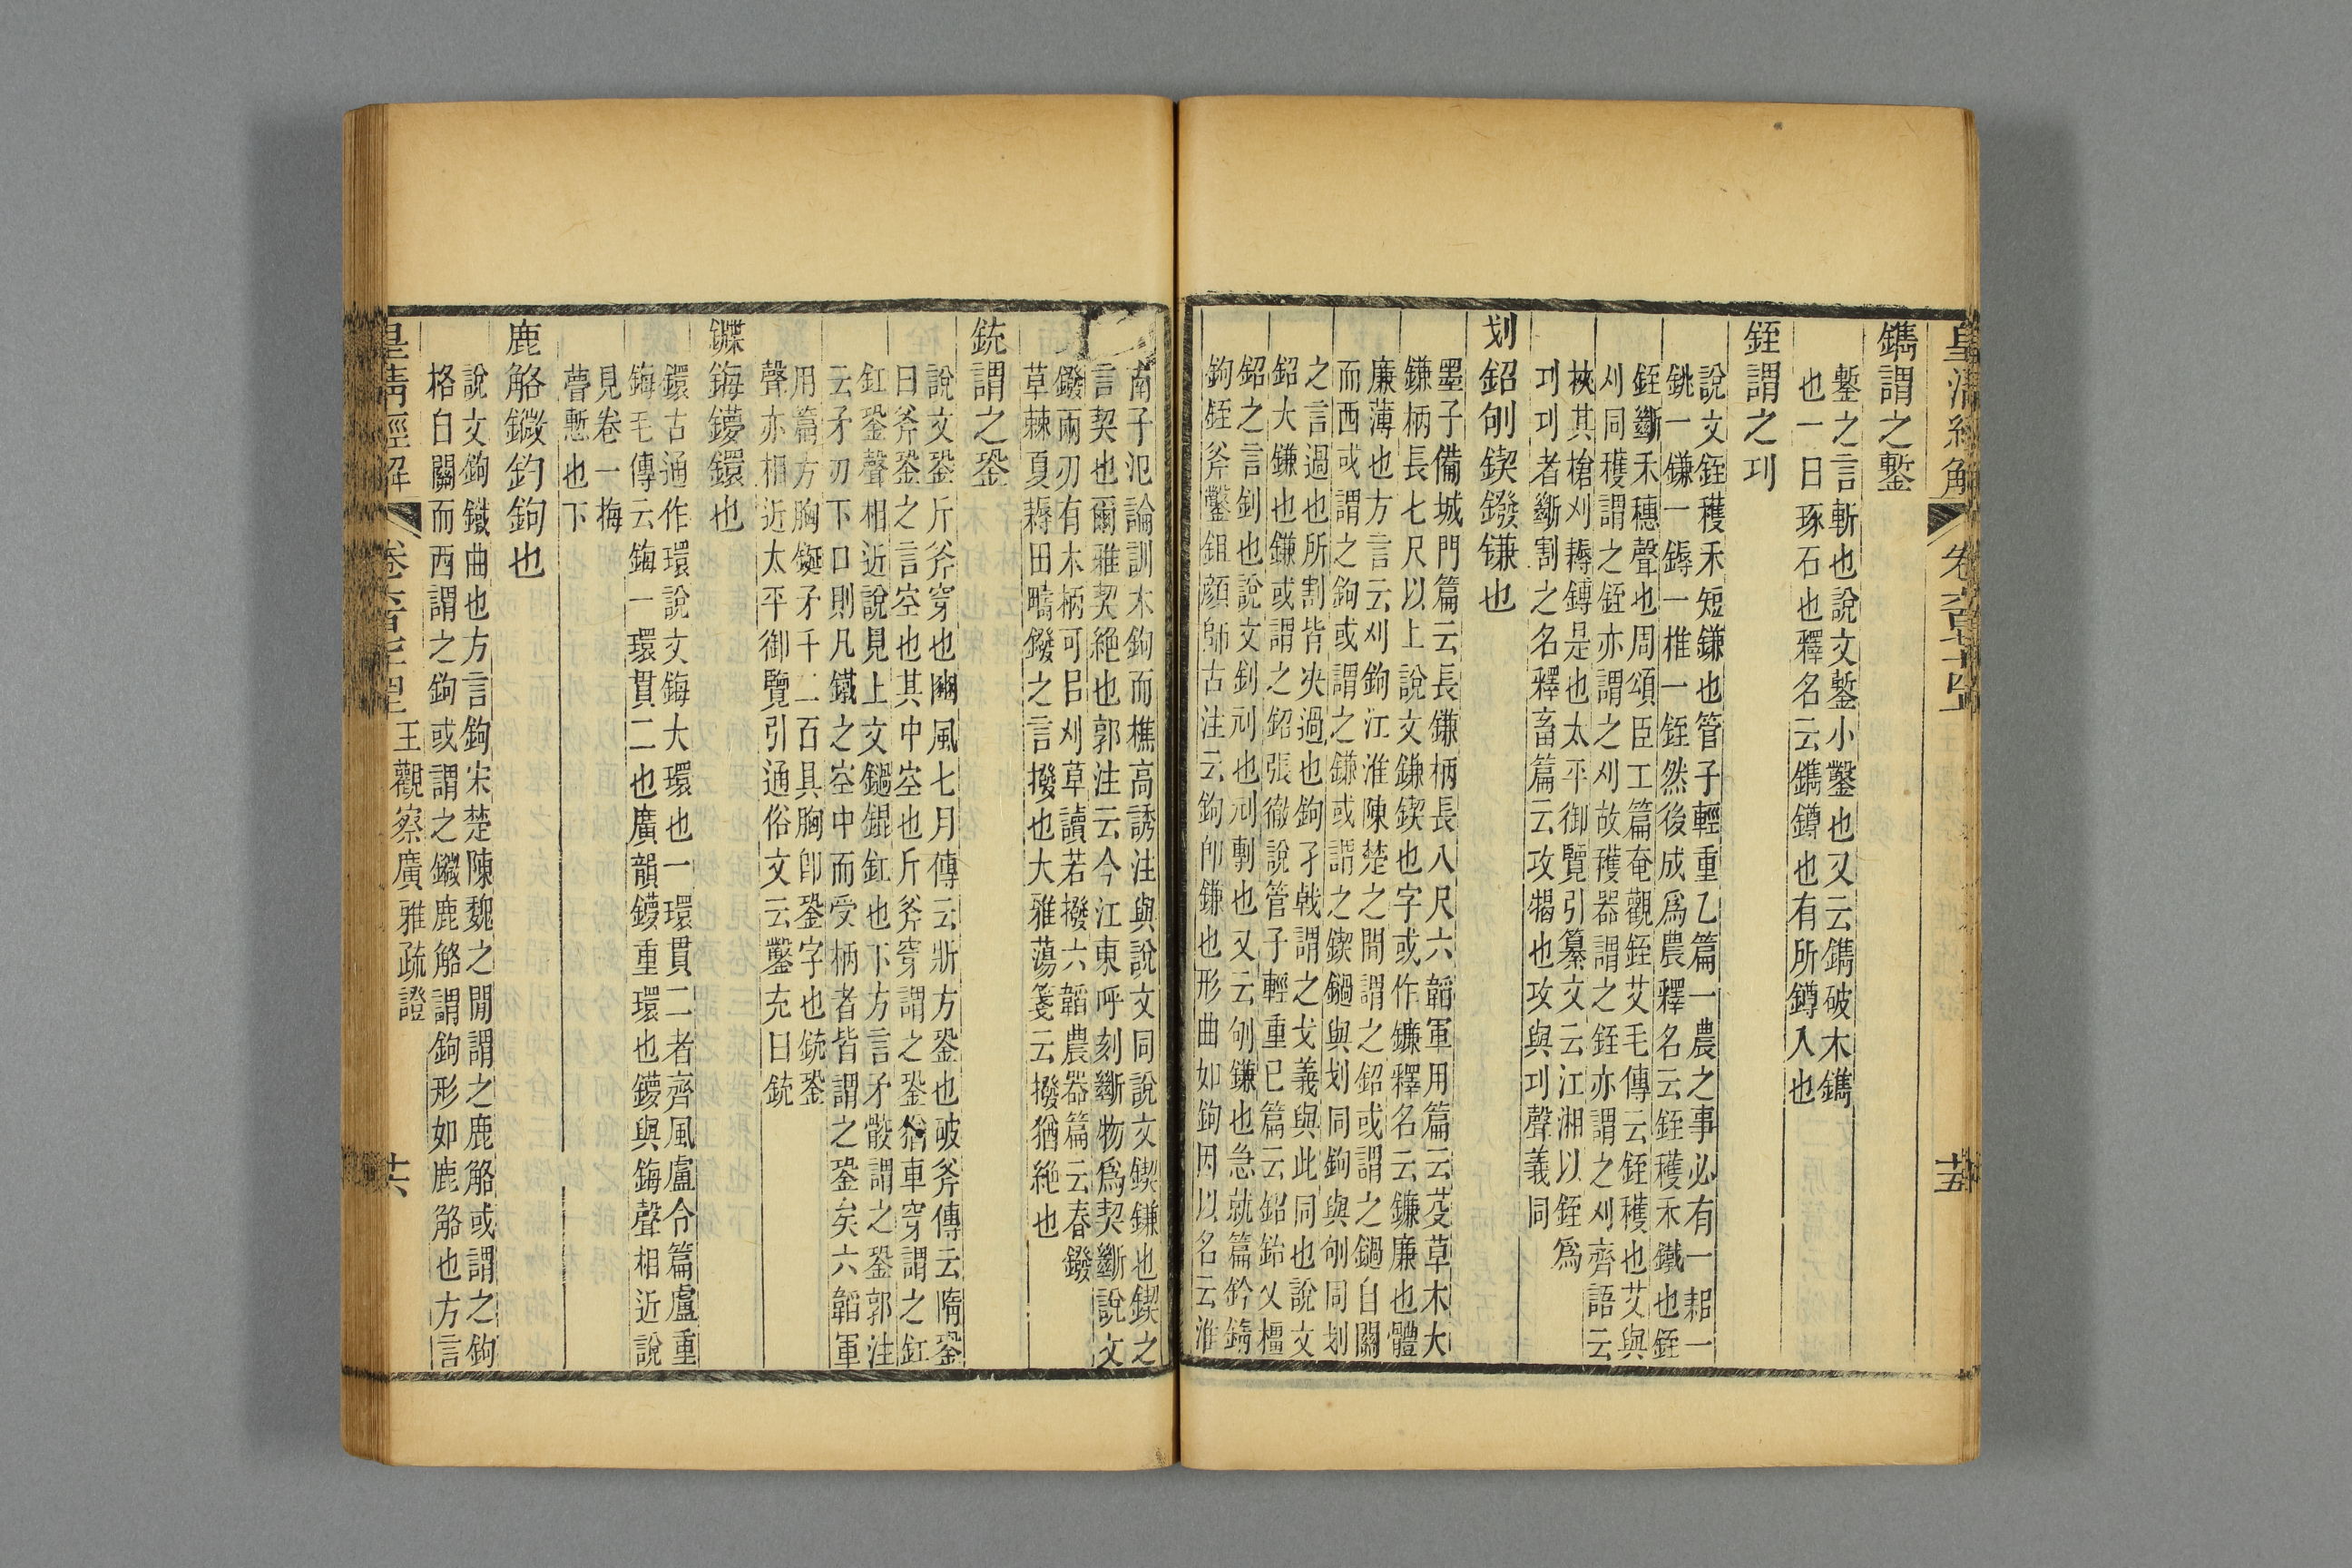 皇清經解 卷六百七十四 十五
鐫謂之鏨
鏨之言斬也說文鏨小鑿也又云鐫破木鐫
也一曰琢石也釋名云鐫鐏也有所鐏入也
銍謂之刈
說文銍穫禾短鎌也管子輕重乙篇一農之事必有一耜一
銚一鎌一鎒一椎一銍然後成爲農釋名云銍穫禾鐵也銍
銍斷禾穗聲也周頌臣工篇奄觀銍艾毛傳云銍穫也艾與
刈同穫謂之銍亦謂之刈故穫器謂之銍亦謂之刈齊語云
挾其槍刈耨鎛是也太平御覽引纂文云江湘以銍爲
刈刈者斷割之名釋畜篇云攻犗也攻與刈聲義同
划鉊刎鍥鐹鎌也
墨子備城門篇云長鎌柄長八尺六韜軍用篇云芟草木大
鎌柄長七尺以上說文鎌鍥也字或作鐮釋名云鐮廉也體
廉薄也方言云刈鉤江淮陳楚之間謂之鉊或謂之鐹自關
而西或謂之鉤或謂之鎌或謂之鍥鐹與划同鉤與刎同划
之言過也所割皆決過也鉤孑戟謂之戈義與此同也說文
鉊大鎌也鎌或謂之鉊張徹說管子輕重己篇云鉊鈶乂橿
鉊之言釗也說文釗刓也刓剸也又云刎鎌也急就篇鈐𨯿
鉤銍斧鑿鉏顏師古注云鉤卽鎌也形曲如鉤因以名云淮
南子氾論訓木鉤而樵高誘注與說文同說文鍥鎌也鍥之
言契也爾雅契絶也郭注云今江東呼刻斷物爲契斷說文
鏺兩刃有木柄可㠯刈草讀若撥六韜農器篇云春鏺
草棘夏耨田疇鏺之言撥也大雅蕩箋云撥猶絶也
銃謂之銎
說文銎斤斧穿也豳風七月傳云斨方銎也破斧傳云隋銎
曰斧銎之言空也其中空也斤斧穿謂之銎猶車穿謂之釭
釭銎聲相近說見上文鐹錕釭也下方言矛骹謂之銎郭注
云矛刃下口則凡鐵之空中而受柄者皆謂之銎矣六韜軍
用篇方胸鋋矛千二百具胸卽銎字也銃銎
聲亦相近太平御覽引通俗文云鑿充曰銃
鏶鋂鑀鐶也
鐶古通作環說文鋂大環也一環貫二者齊風盧令篇盧重
鋂毛傳云鋂一環貫二也廣韻鑀重環也鑀與鋂聲相近說
見卷一梅
瞢慙也下
鹿觡鐖釣鉤也
說文鉤鐵曲也方言鉤宋楚陳魏之閒謂之鹿觡或謂之鉤
格自關而西謂之鉤或謂之鐖鹿觡謂鉤形如鹿觡也方言
皇清經解 卷六百七十四 王觀察廣雅疏證 十六